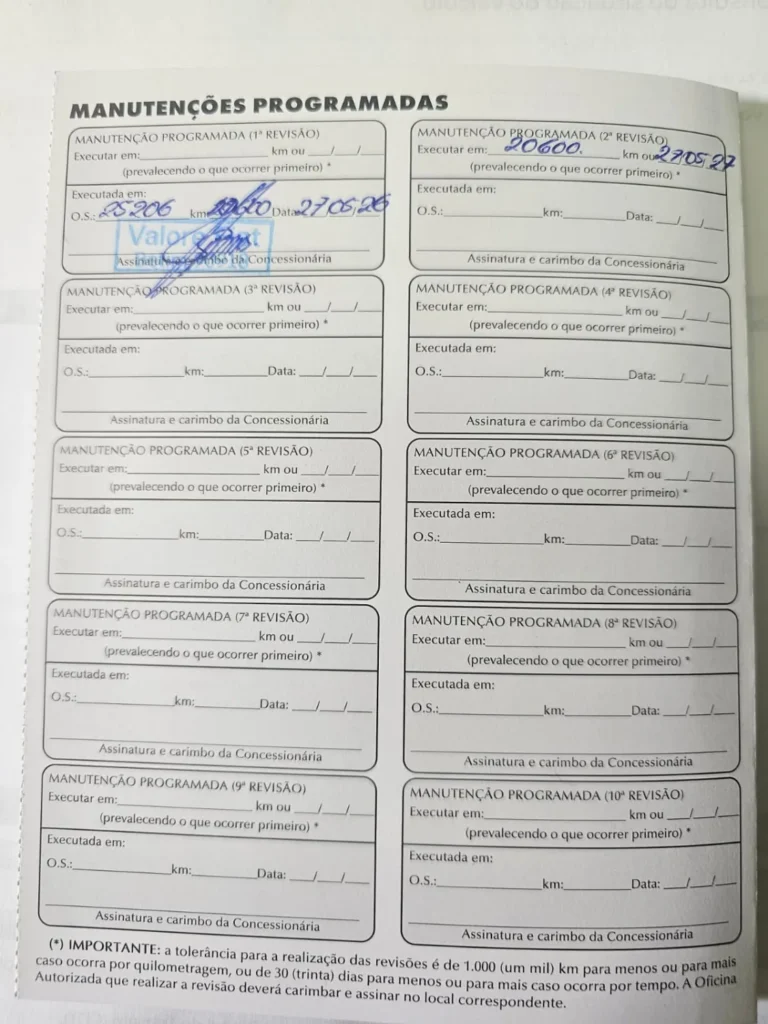 MANUTENÇÕES PROGRAMADAS
MANUTENÇÃO PROGRAMADA (1ª REVISÃO)
Executar em:____________ km ou ___/___/___
(prevalecendo o que ocorrer primeiro) *
Executada em:
O.S.: 25206 km: Data: 27/05/26
Assinatura e carimbo da Concessionária
MANUTENÇÃO PROGRAMADA (2ª REVISÃO)
Executar em: 20600. km ou 27/05/27
(prevalecendo o que ocorrer primeiro) *
O.S.:____________km:_________Data: ___/___/___
Assinatura e carimbo da Concessionária
MANUTENÇÃO PROGRAMADA (3ª REVISÃO)
Executar em:____________ km ou ___/___/___
(prevalecendo o que ocorrer primeiro) *
Executada em:
O.S.:____________km:_________Data: ___/___/___
Assinatura e carimbo da Concessionária
MANUTENÇÃO PROGRAMADA (4ª REVISÃO)
Executar em:____________ km ou ___/___/___
(prevalecendo o que ocorrer primeiro) *
Executada em:
O.S.:____________km:_________Data: ___/___/___
Assinatura e carimbo da Concessionária
MANUTENÇÃO PROGRAMADA (5ª REVISÃO)
Executar em:____________ km ou ___/___/___
(prevalecendo o que ocorrer primeiro) *
Executada em:
O.S.:____________km:_________Data: ___/___/___
Assinatura e carimbo da Concessionária
MANUTENÇÃO PROGRAMADA (6ª REVISÃO)
Executar em:____________ km ou ___/___/___
(prevalecendo o que ocorrer primeiro) *
Executada em:
O.S.:____________km:_________Data: ___/___/___
Assinatura e carimbo da Concessionária
MANUTENÇÃO PROGRAMADA (7ª REVISÃO)
Executar em:____________ km ou ___/___/___
(prevalecendo o que ocorrer primeiro) *
Executada em:
O.S.:____________km:_________Data: ___/___/___
Assinatura e carimbo da Concessionária
MANUTENÇÃO PROGRAMADA (8ª REVISÃO)
Executar em:____________ km ou ___/___/___
(prevalecendo o que ocorrer primeiro) *
Executada em:
O.S.:____________km:_________Data: ___/___/___
Assinatura e carimbo da Concessionária
MANUTENÇÃO PROGRAMADA (9ª REVISÃO)
Executar em:____________ km ou ___/___/___
(prevalecendo o que ocorrer primeiro) *
Executada em:
O.S.:____________km:_________Data: ___/___/___
Assinatura e carimbo da Concessionária
MANUTENÇÃO PROGRAMADA (10ª REVISÃO)
Executar em:____________ km ou ___/___/___
(prevalecendo o que ocorrer primeiro) *
Executada em:
O.S.:____________km:_________Data: ___/___/___
Assinatura e carimbo da Concessionária
(*) IMPORTANTE: a tolerância para a realização das revisões é de 1.000 (um mil) km para menos ou para mais
caso ocorra por quilometragem, ou de 30 (trinta) dias para menos ou para mais caso ocorra por tempo. A Oficina
Autorizada que realizar a revisão deverá carimbar e assinar no local correspondente.